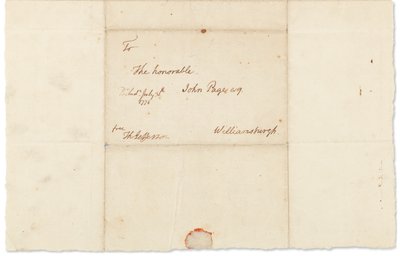 To
The honorable
John Page esq.
July
1776
free
Th: Jefferson
Williamsburgh.